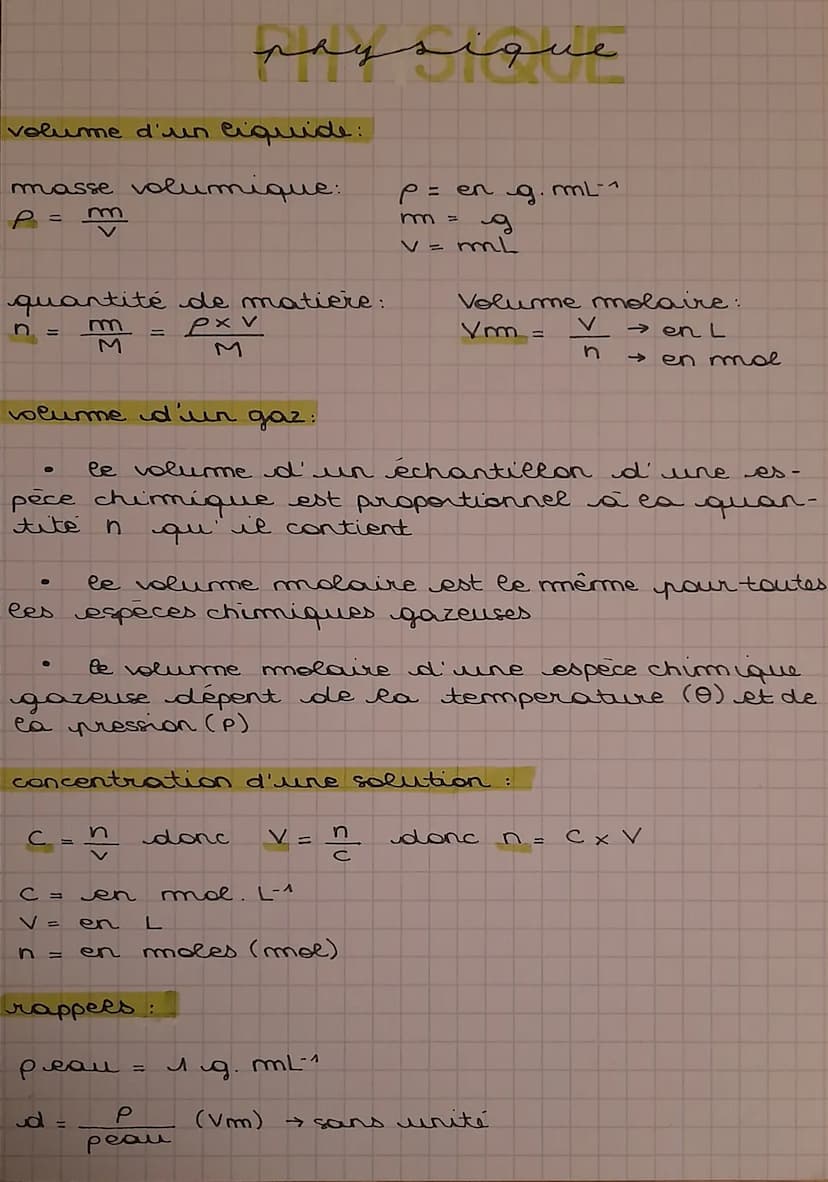 PHYSIQUE
physique
volume d'un liquide:
masse volumique: ρ = en g. mL⁻¹
ρ = m/V m = g
V = mL
quantité de matière: Volume molaire:
n = m/M = ρ x V/M Vm = V/n → en L
→ en mol
volume d'un gaz:
• le volume d'un échantillon d'une es-
pèce chimique est proportionnel à la quan-
tité n qu'il contient
• le volume molaire est le même pour toutes
les espèces chimiques gazeuses
• le volume molaire d'une espèce chimique
gazeuse dépent de la temperature (θ) et de
la pression (P)
concentration d'une solution :
C = n/V donc V = n/C donc n = C x V
C = en mol. L⁻¹
V = en L
n = en moles (mol)
rappels :
ρeau = 1 g. mL⁻¹
d = ρ/ρeau (Vm) → sans unité